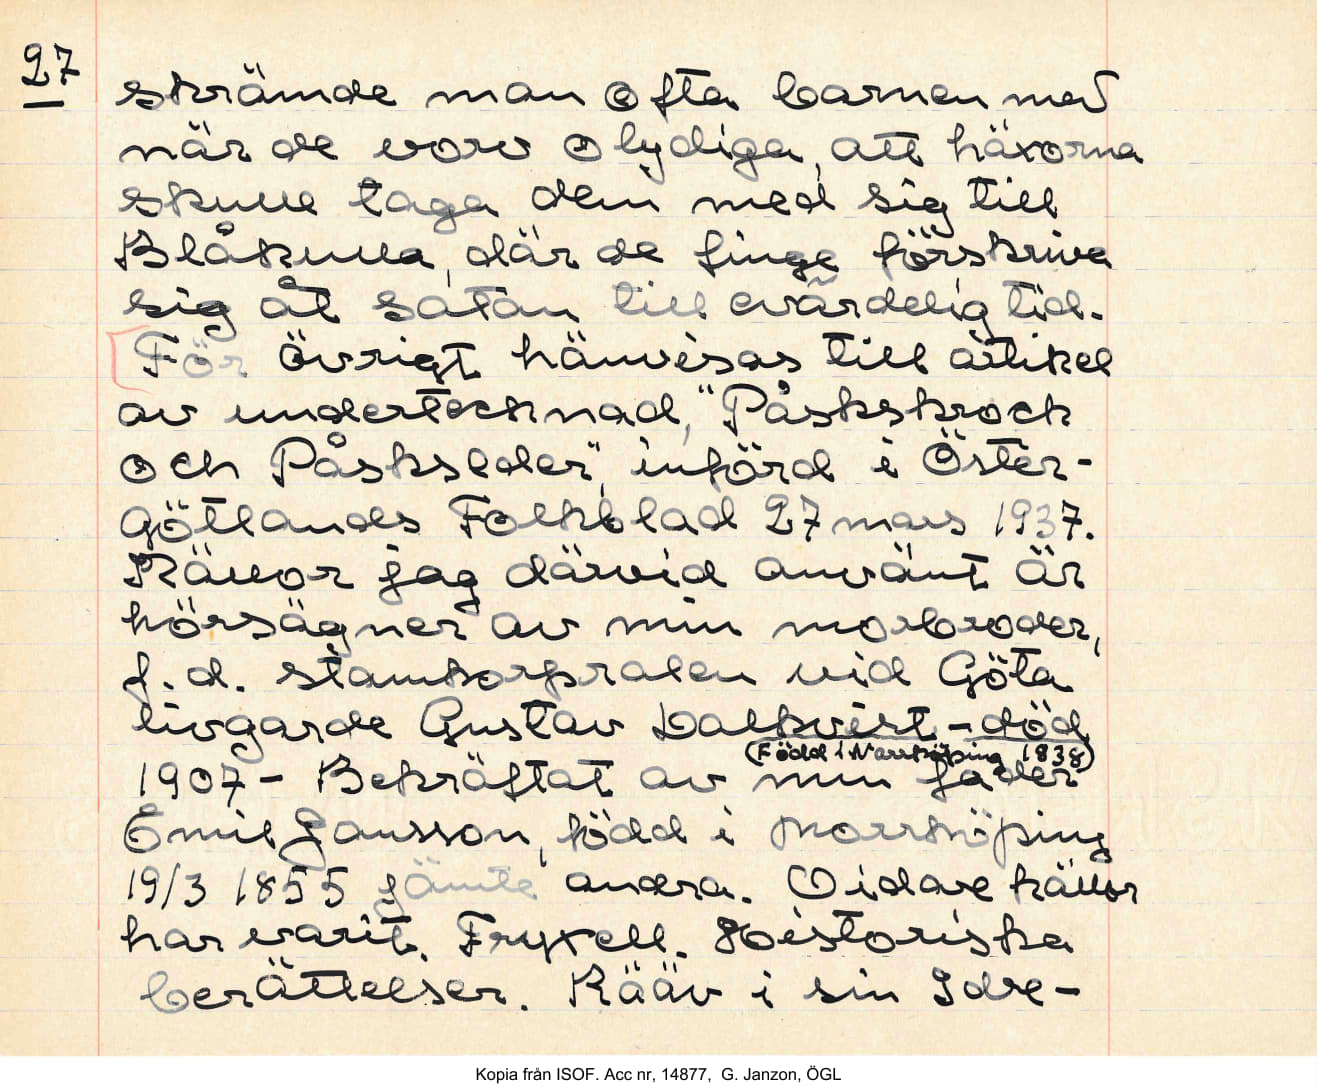 27
skrämde man ofta barnen med
när de voro olydiga, att häxorna
skulle taga dem med sig till
Blåkulla, där de finge förskriva
sig åt satan till evärdelig tid.
För övrigt hänvisas till artikel
av undertecknad, "Påskskrock
och Påskseder", införd i Öster-
götlands Folkblad 27 mars 1937.
Källor jag därvid använt är
hörsägner av min morbroder,
f.d. stamkorpralen vid Göta
livgarde Gustav Dalkvist - död
(Född i Norrköping 1838)
1907 - Bekräftat av min fader
Emil Jansson, född i Norrköping
19/3 1855 jämte andra. Vidare källor
har varit. Fryxell. Historiska
berättelser. Rääv i sin Ydre-
Kopia från ISOF. Acc nr, 14877, G. Janzon, ÖGL